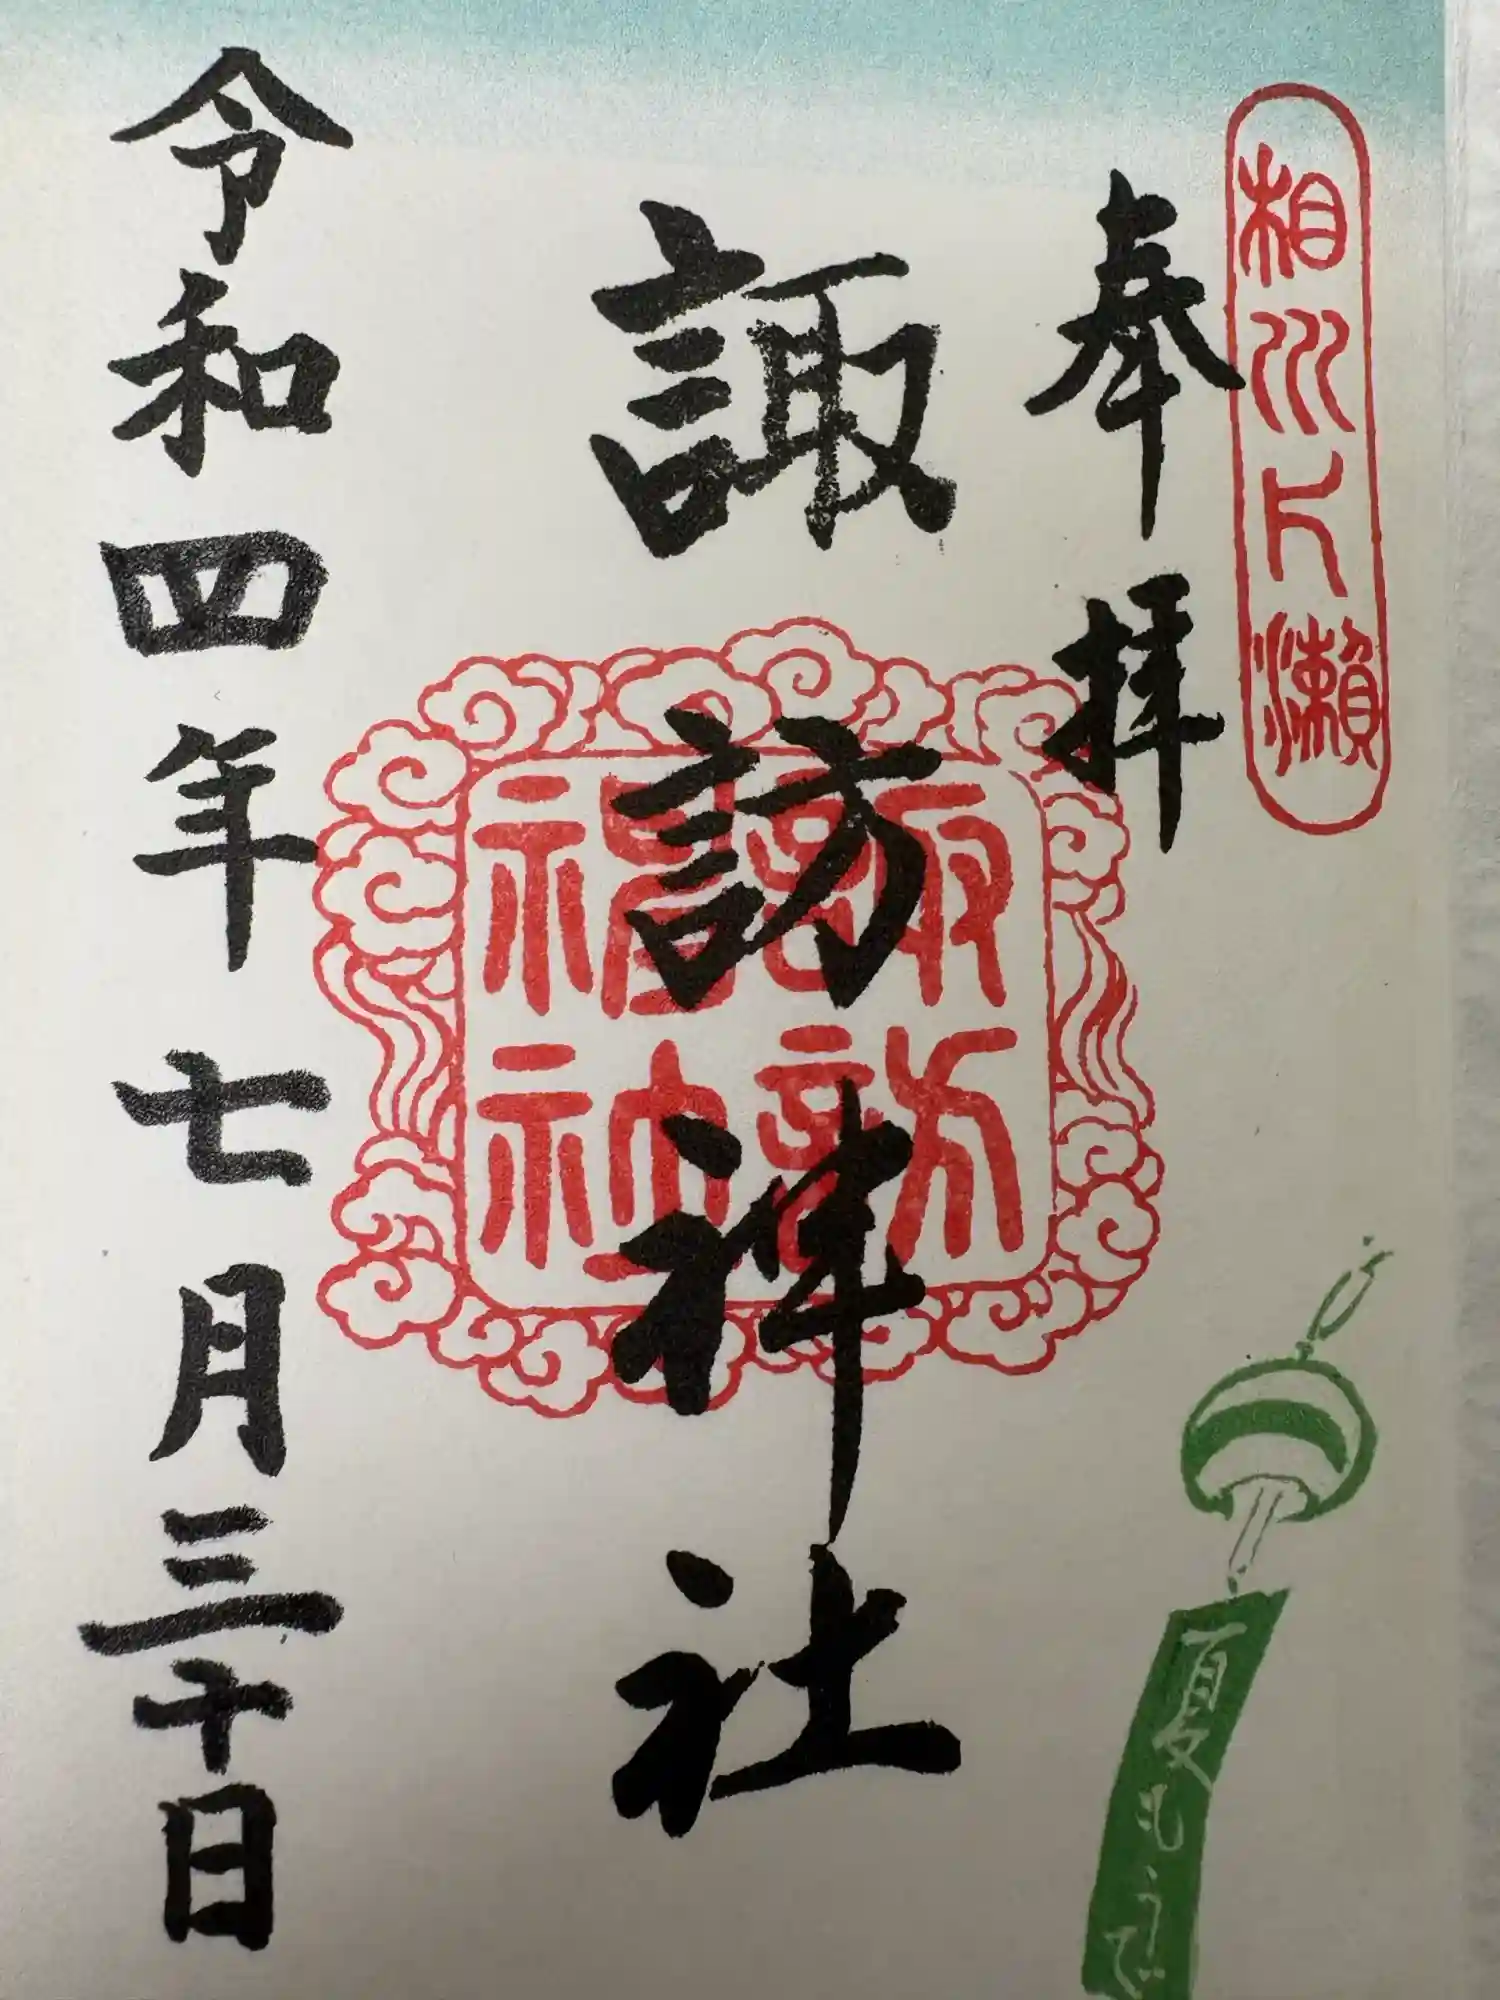 相州片瀬
奉拝
諏訪神社
諏訪神社
令和四年七月三十日
夏もうで